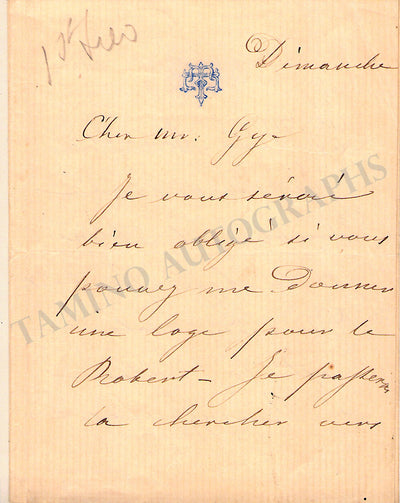 Dimanche
Cher mr: Gye
Je vous serai
bien obligé si vous
pouvez me donner
une loge pour le
Robert - Je passerai
la chercher vers
TAMINO AUTOGRAPHS